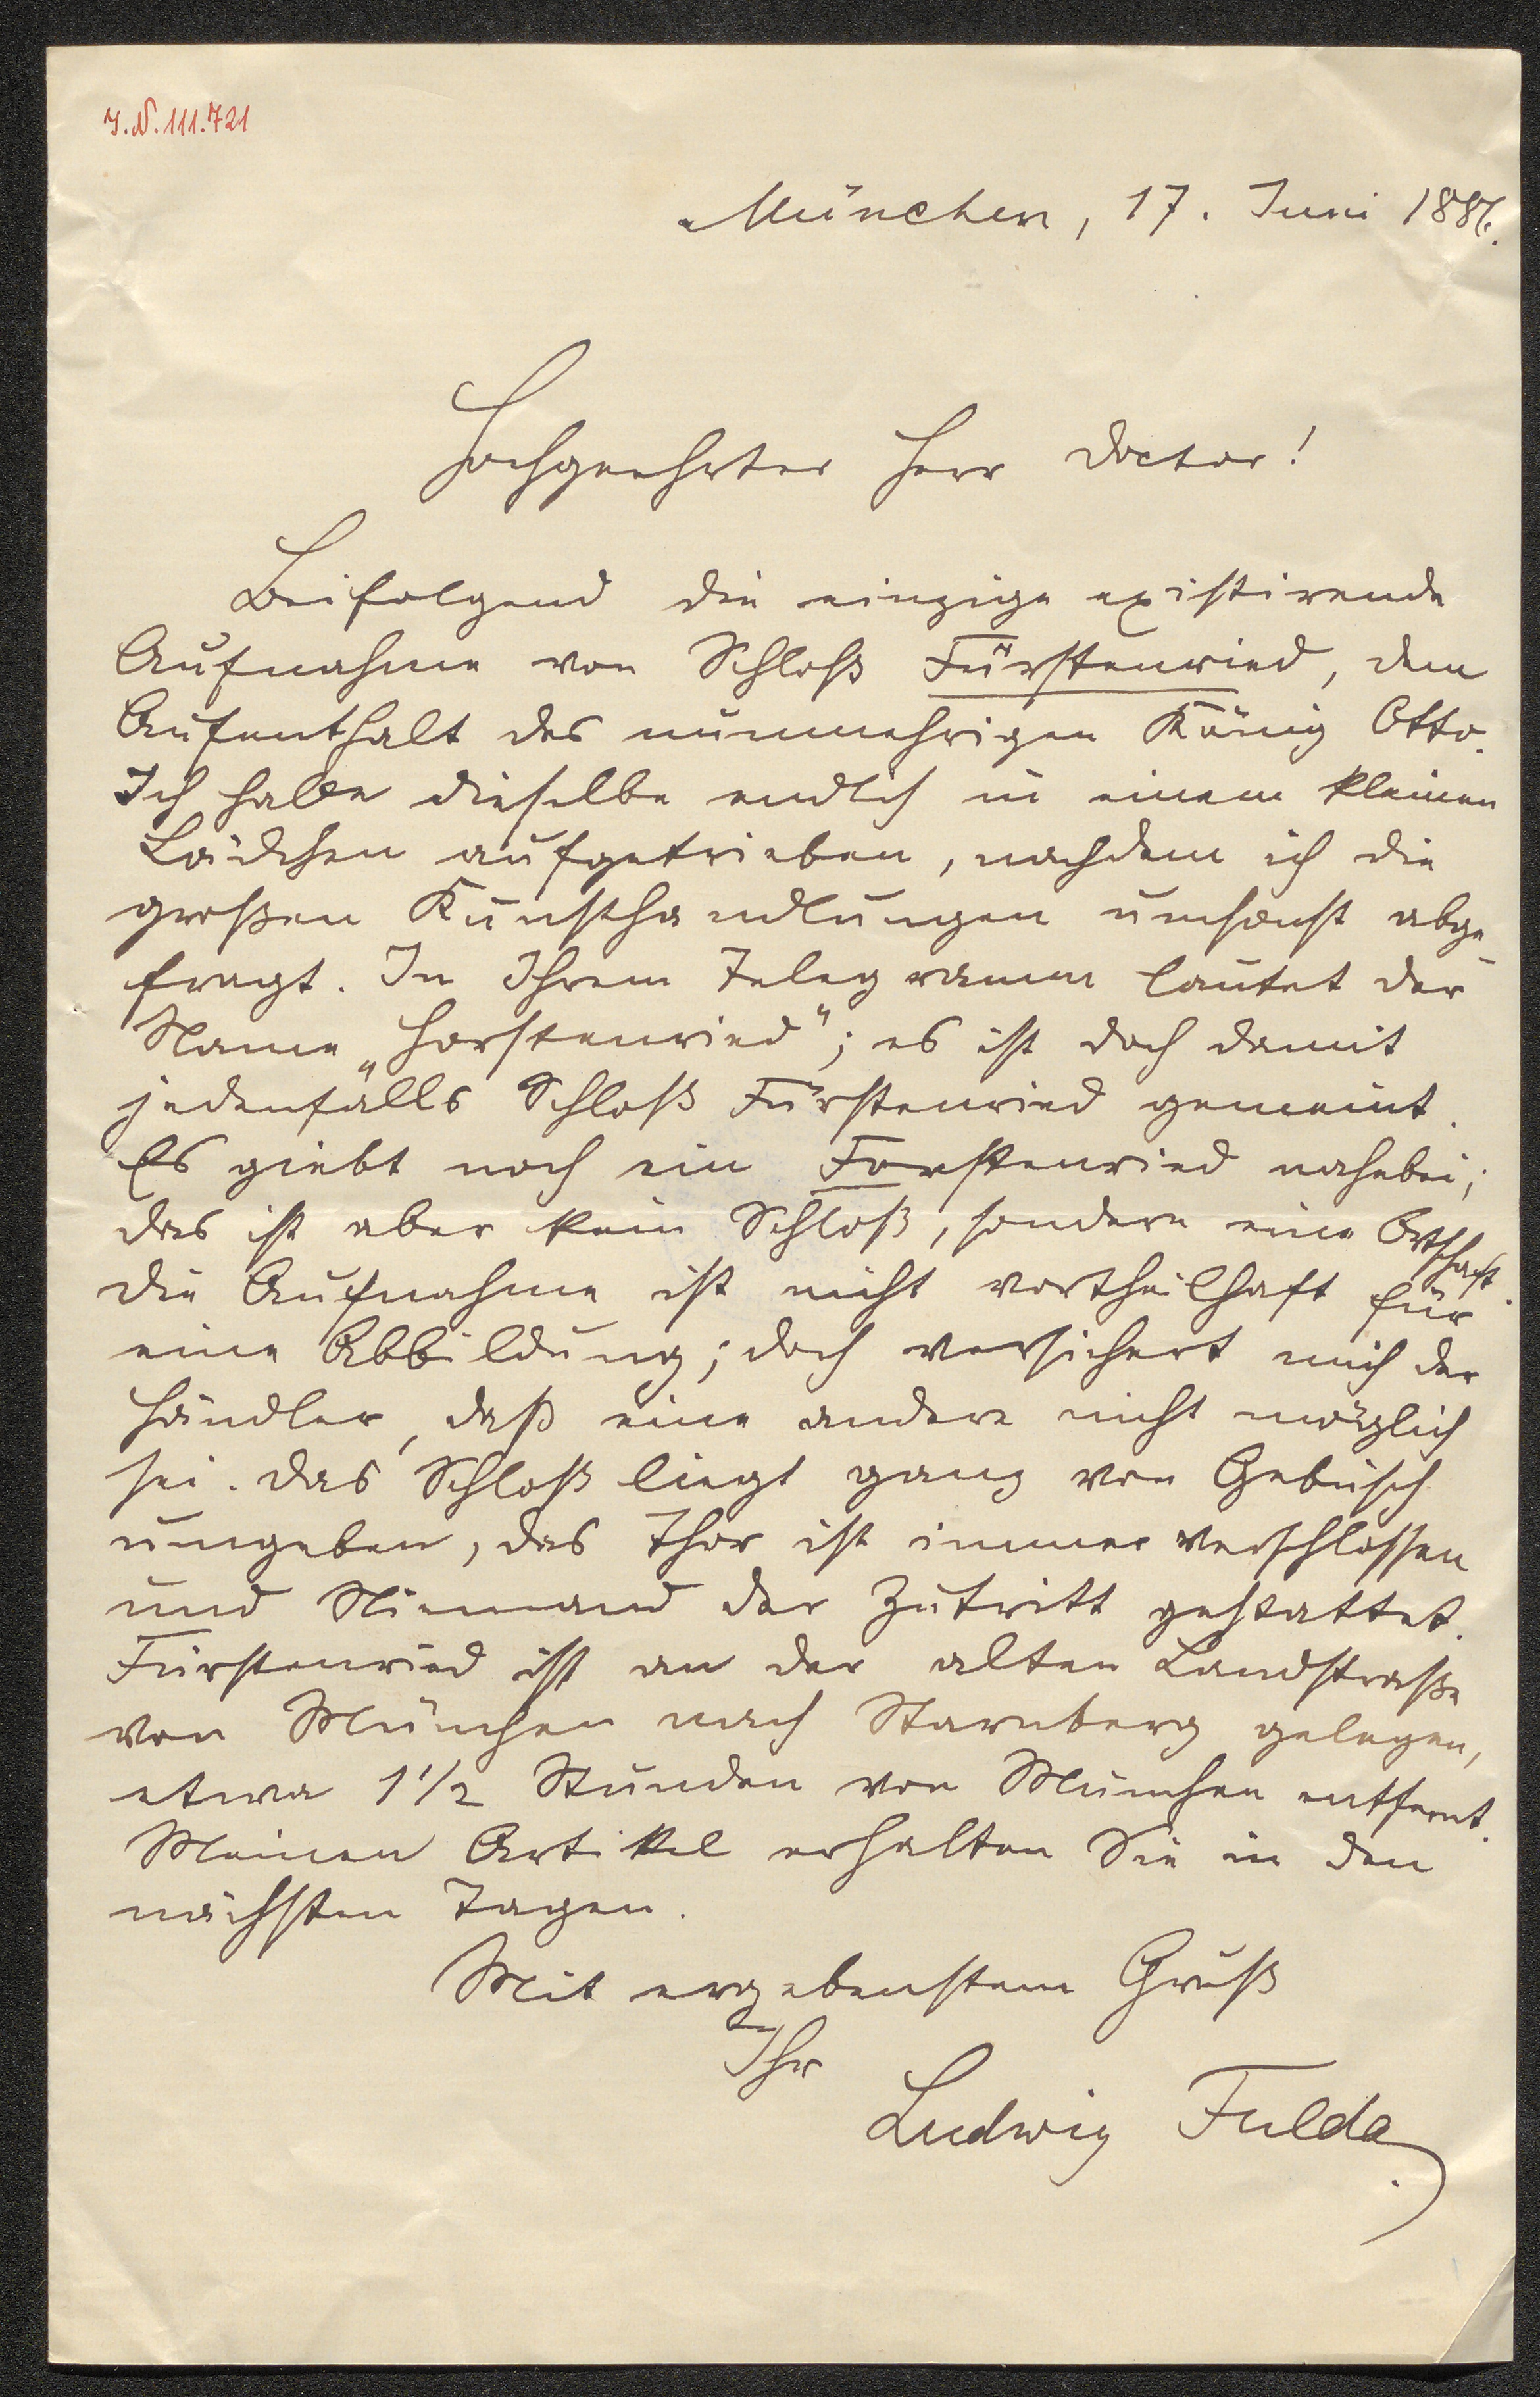 I.N. 111.721
München, 17. Juni 1886.
Hochgeehrter Herr Doctor!
Beifolgend die einzige existirende
Aufnahme von Schloß Fürstenried, dem
Aufenthalt des nunmehrigen König Otto.
Ich habe dieselbe endlich in einem kleinen
Lädchen aufgetrieben, nachdem ich die
großen Kunsthandlungen umsonst abge
fragt. In Ihrem Telegramm lautet der
Name „Horstenried"; es ist doch damit
jedenfalls Schloß Fürstenried gemeint.
Es giebt noch ein Forstenried nahebei;
das ist aber kein Schloß, sondern eine Ortschaft.
Die Aufnahme ist nicht vortheilhaft für
eine Abbildung; doch versichert mich der
Händler, daß eine andere nicht möglich
sei. Das Schloß liegt ganz von Gebüsch
umgeben, das Thor ist immer verschlossen
und Niemand der Zutritt gestattet.
Fürstenried ist an der alten Landstraße
von München nach Starnberg gelegen,
etwa 1 1/2 Stunden von München entfernt.
Meinen Artikel erhalten Sie in den
nächsten Tagen.
Mit ergebenstem Gruß
Ihr
Ludwig Fulda